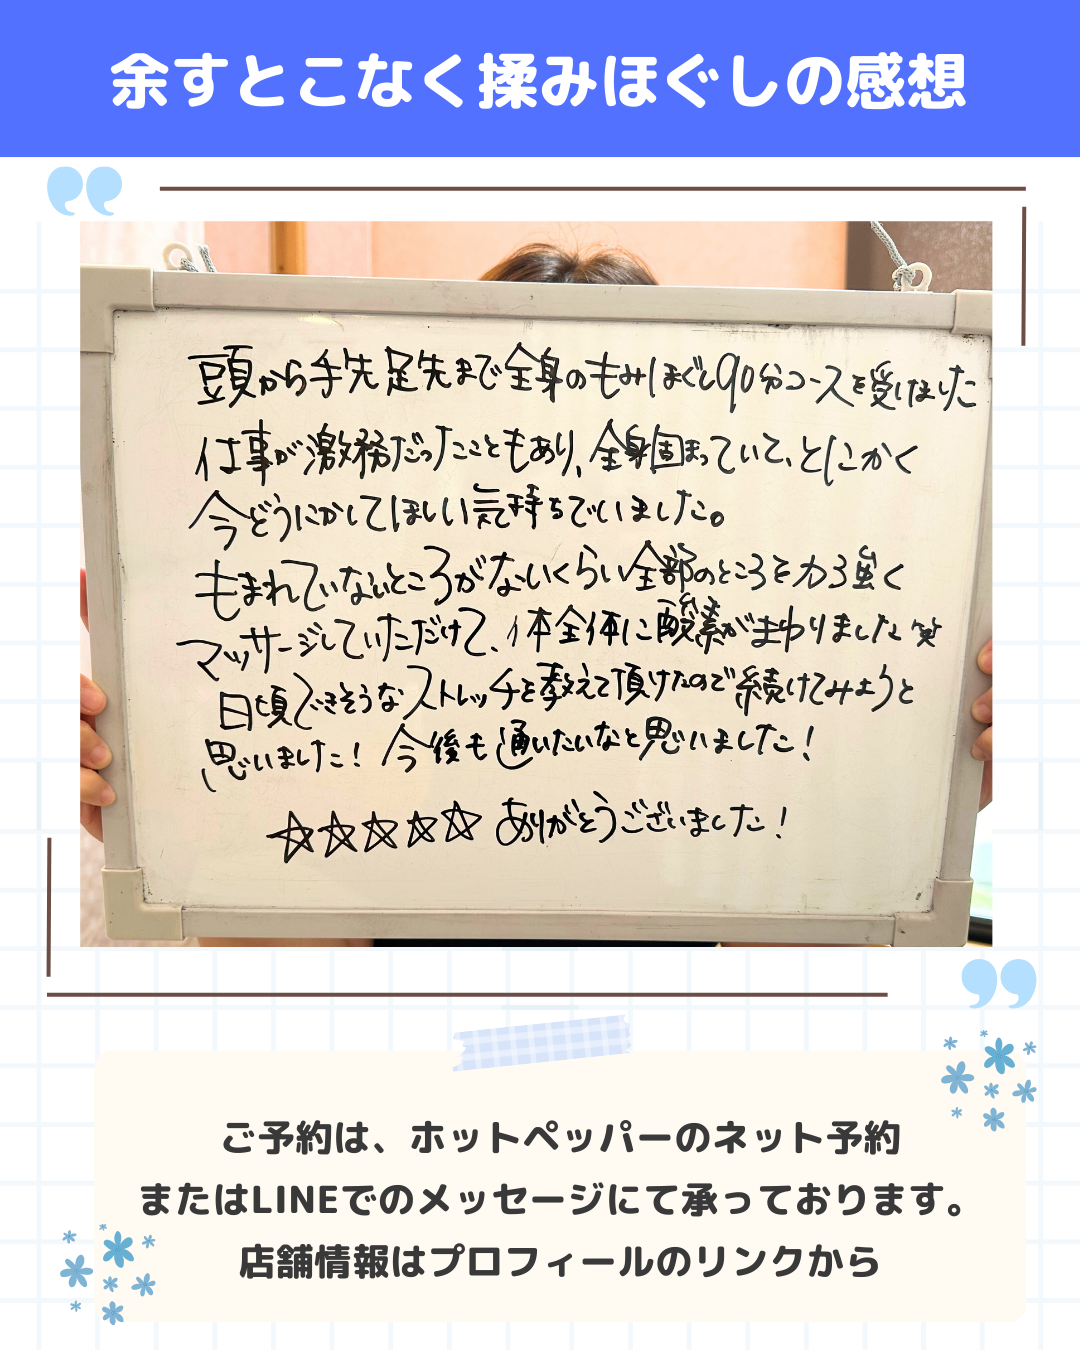 余すとこなく揉みほぐしの感想
頭から手先足先まで全身のもみほぐし90分コースを受けました
仕事が激務だったこともあり、全身固まっていて、とにかく
今どうにかしてほしい気持ちでいました。
もまれていないところがないくらい全部のところを力強く
マッサージしていただけて、体全体に酸素がまわりました笑
日頃できそうなストレッチを教えて頂けたので続けてみようと
思いました！今後も通いたいなと思いました！
☆☆☆☆☆ ありがとうございました！
ご予約は、ホットペッパーのネット予約
またはLINEでのメッセージにて承っております。
店舗情報はプロフィールのリンクから